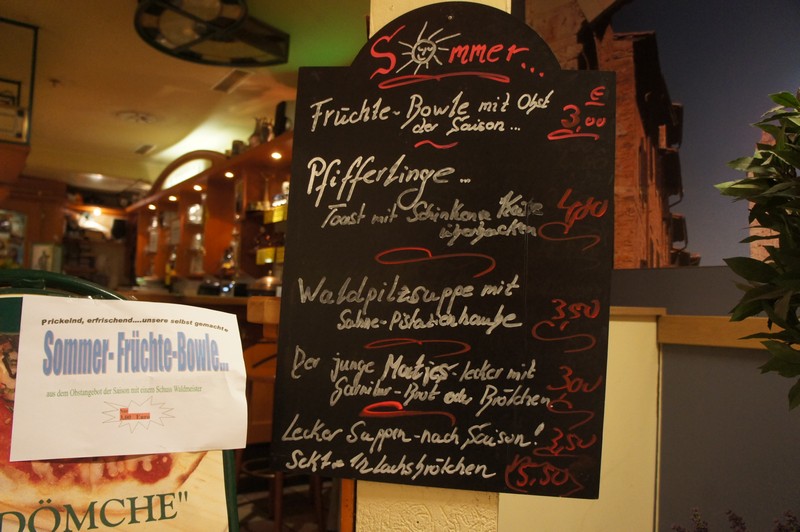 Sommer...
€
Früchte-Bowle mit Obst 3,00
der Saison...
Pfifferlinge...
Toast mit Schinken & Käse 4,00
überbacken
Waldpilzsuppe mit 3,50
Sahne-Pistazienhaube
Der junge Matjes-lecker mit 3,00
Garnitur-Brot oder Brötchen
Lecker Suppen-nach Saison! 3,50
Sekt + 1/2 Lachsbrötchen 5,50
Prickelnd, erfrischend....unsere selbst gemachte
Sommer- Früchte-Bowle...
aus dem Obstangebot der Saison mit einem Schuss Waldmeister
DÖMCHE"